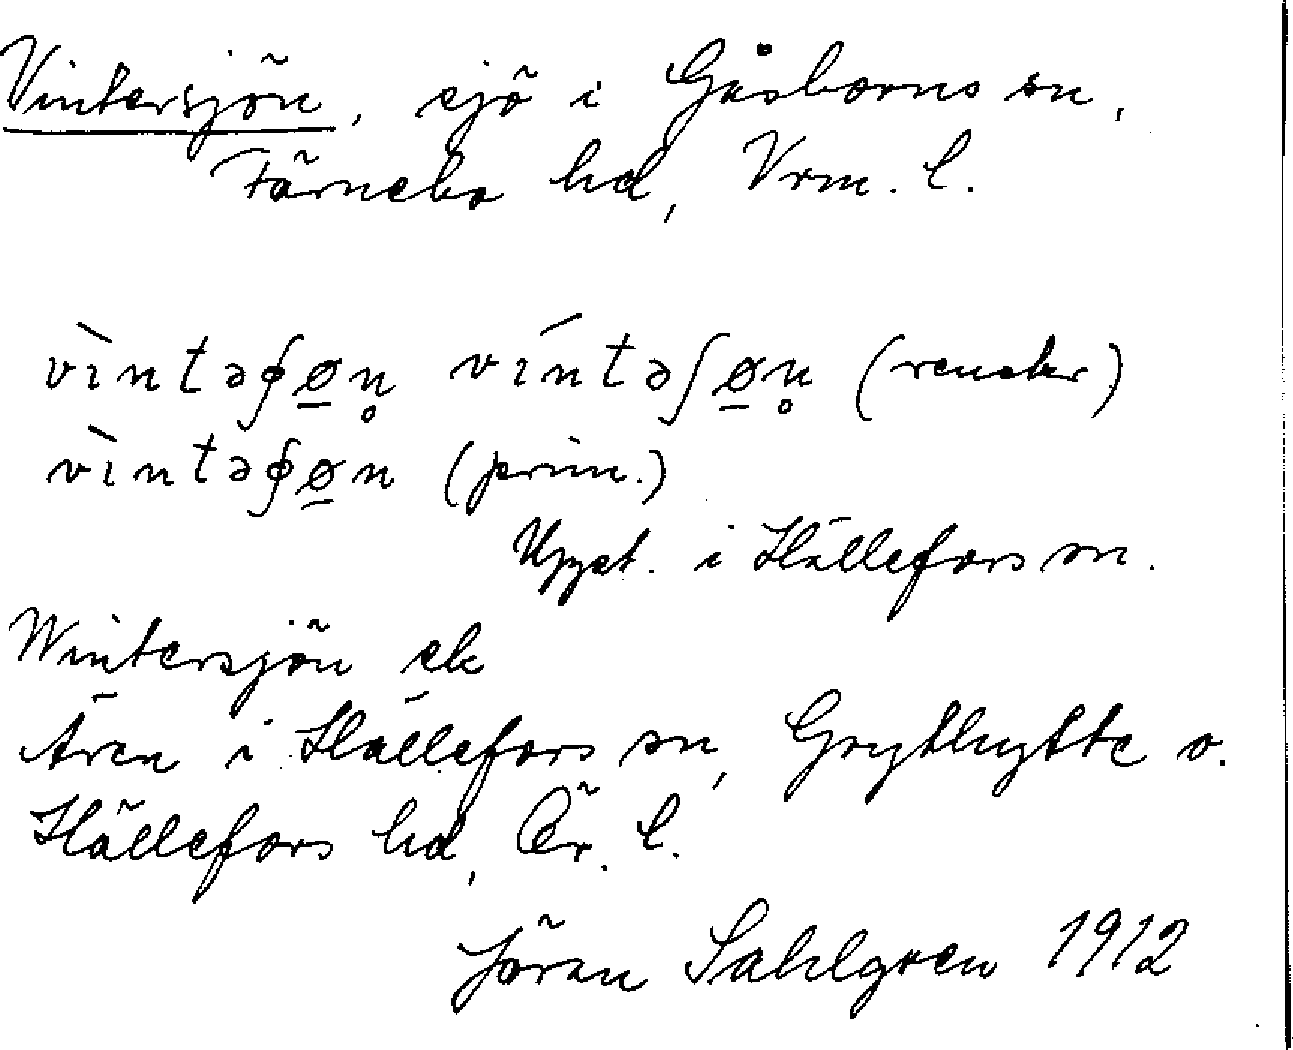 Vintersjön, sjö i Gåsborns sn,
Färnebo hd, Vrm. l.
vìntəʃø̠n̥ víntəʃø̠n̥ (renskr)
vìntəʃø̠n (prim.)
Uppt. i Hällefors sn.
Wintersjön ek
Ären i Hällefors sn, Grythytte o.
Hällefors hd, Ör. l.
Jöran Sahlgren 1912